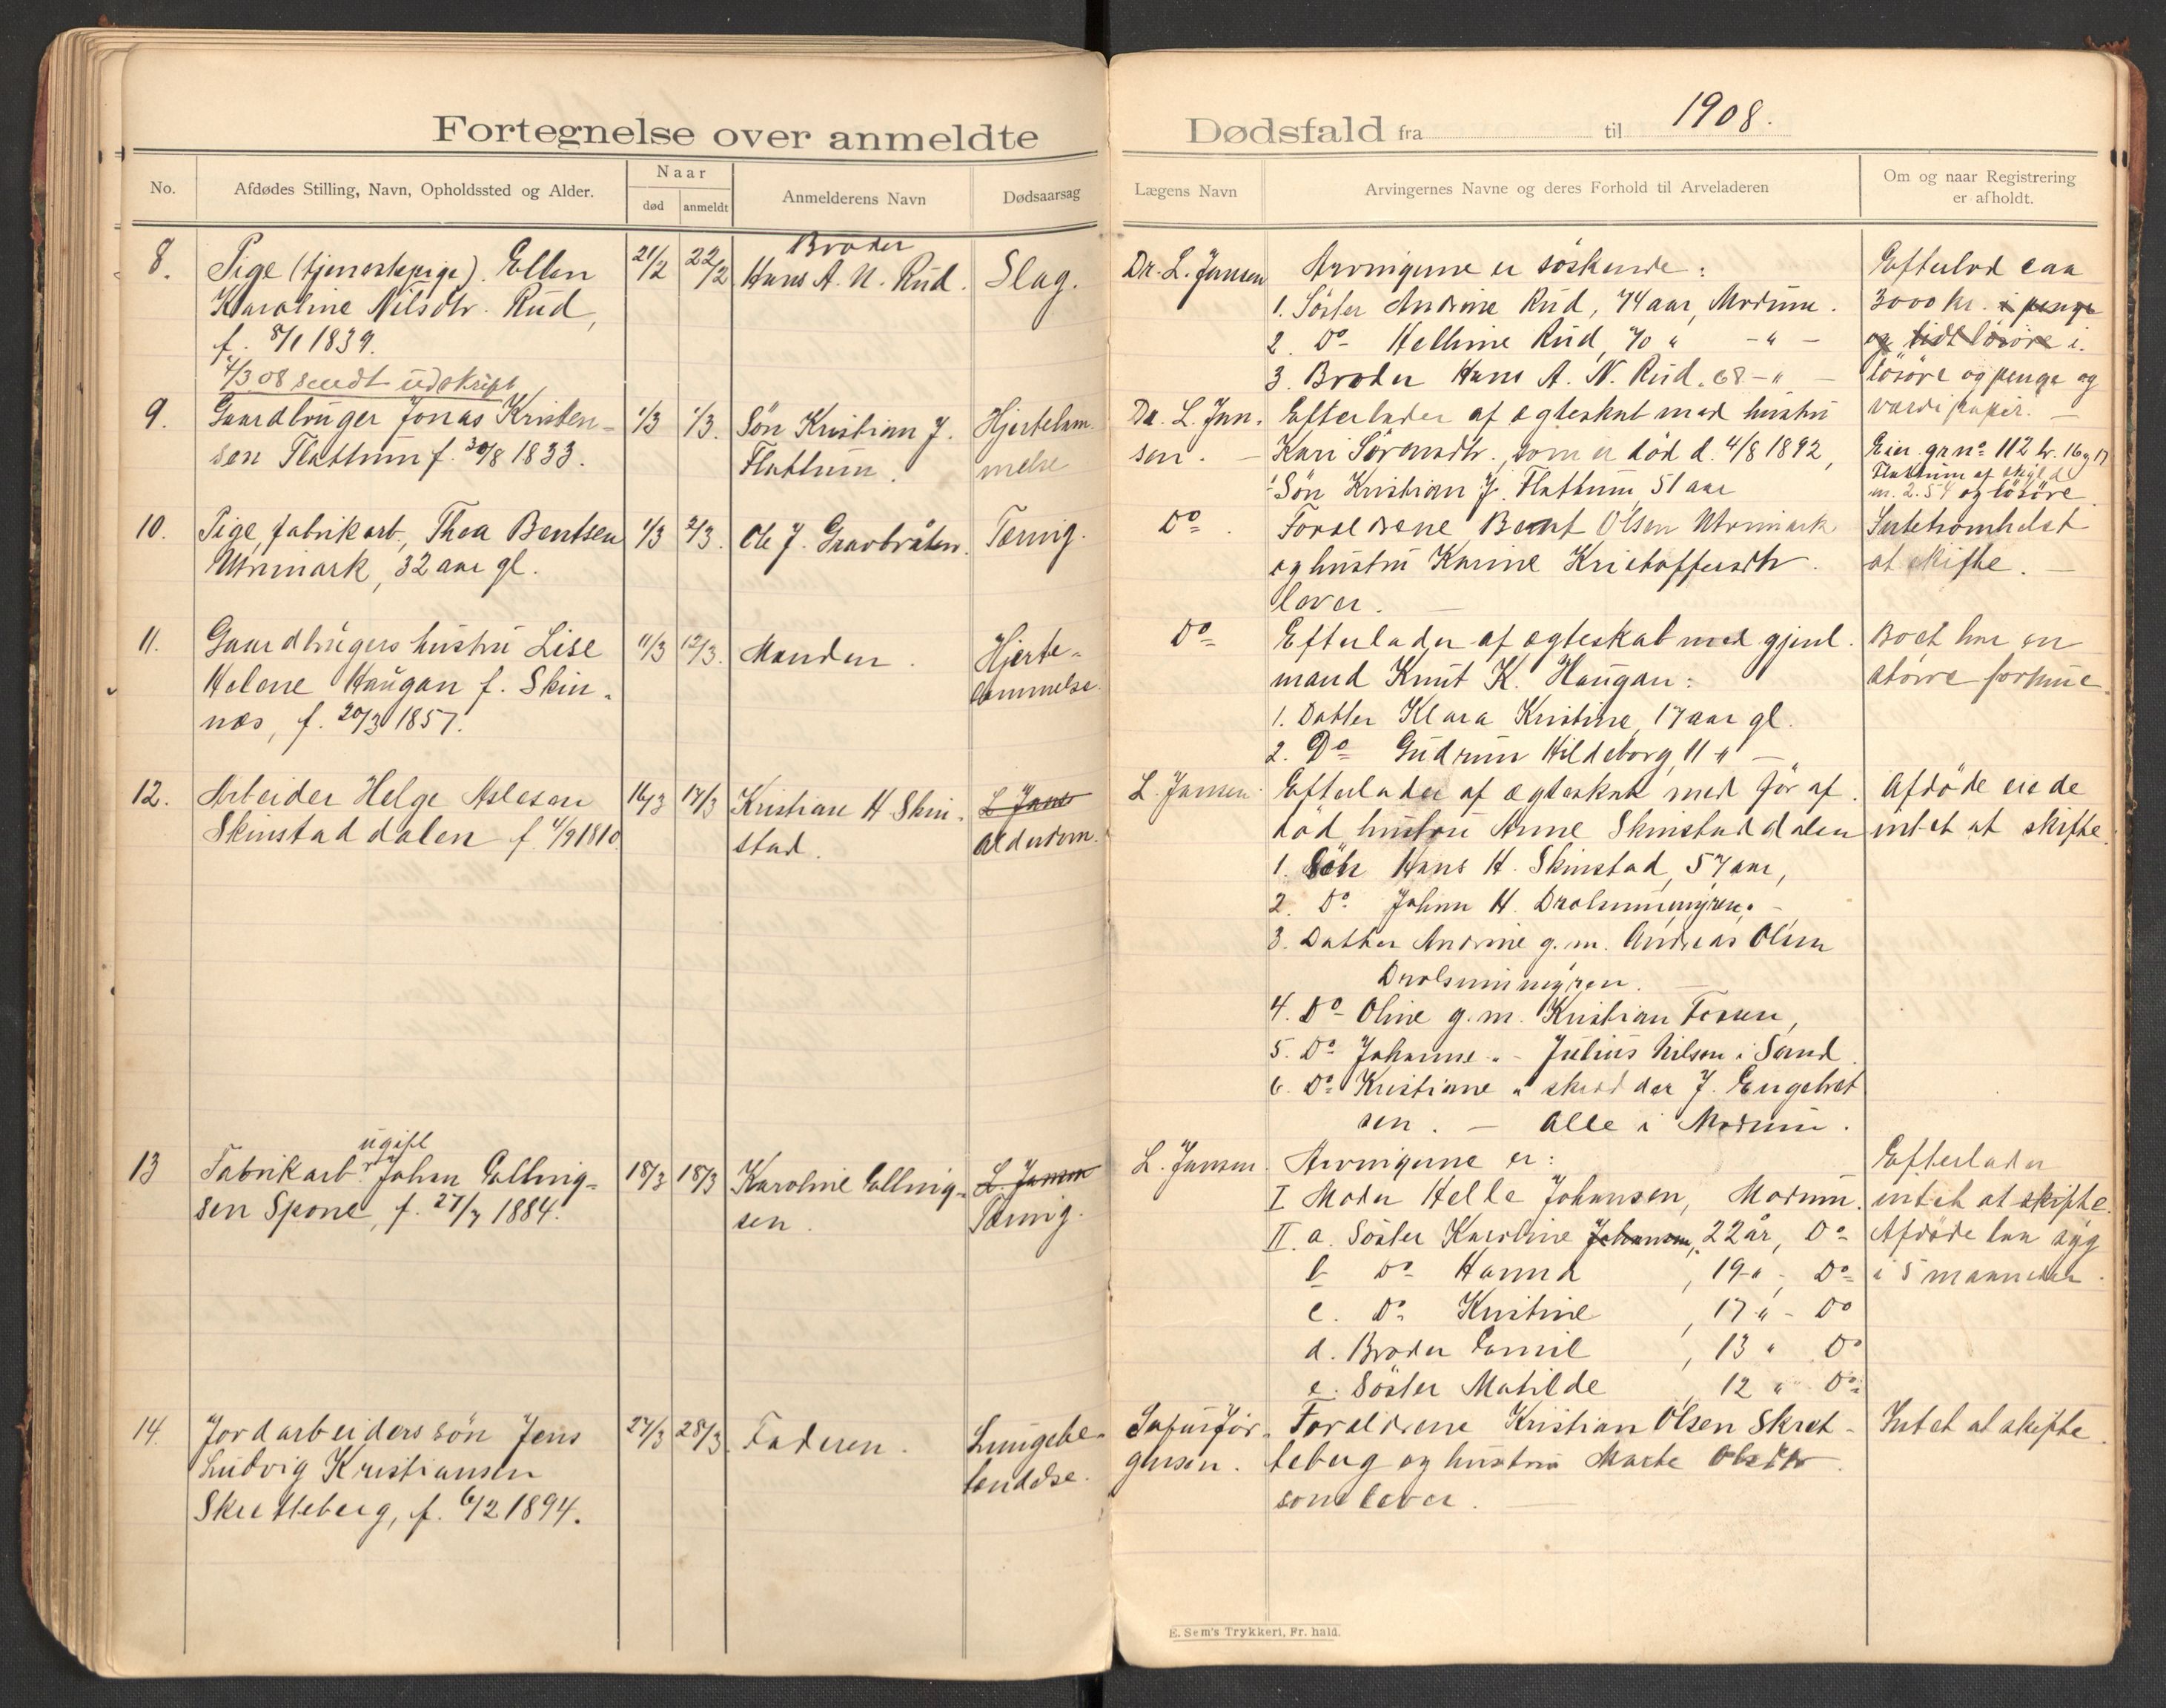 Fortegnelse over anmeldte
No.
Afdødes Stilling, Navn, Opholdssted og Alder.
Naar
død
anmeldt
Anmelderens Navn
Dødsaarsag
8.
Pige (tjenestepige). Ellen
Karoline Nilsdtr. Rud,
f. 8/1 1839.
4/3 08 sendt udskript
21/2
22/2
Broder
Hans A. N. Rud.
Slag.
9.
Gaardbruger Jonas Kristen-
sen Flattum f. 30/8 1833.
1/3
1/3.
Søn Kristian J.
Flattum.
Hjertelam-
melse
10.
Pige, fabrikarb., Thea Bentsen
Utrimark, 32 aar gl.
1/3
2/3.
Ole J. Gravbråten.
Tæring.
11.
Gaardbrugers hustru Lise
Helene Haugan f. Skin-
næs, f. 20/3 1857.
11/3
12/3.
Manden.
Hjerte-
lammelse.
12.
Arbeider Helge Aslesen
Skinstaddalen f. 4/9 1810
16/3
17/3
Kristiane H Skin-
stad.
L Jans
alderdom.
13
ugift
Fabrikarb. Johan Elling-
sen Spone, f. 27/7 1884.
18/3
18/3
Karoline Elling-
sen.
L. Jansen
Tæring.
14.
Jordarbeiders søn Jens
Ludvig Kristiansen
Skretteberg, f. 6/2 1894.
27/3
28/3.
Faderen.
Lungebe-
tændelse.
Dødsfald fra til 1908.
Lægens Navn
Arvingernes Navne og deres Forhold til Arveladeren
Om og naar Registrering
er afholdt.
Dr. L. Jansen
Arvingerne er søskende:
1. Søster Andrine Rud, 74 aar, Modum.
2. Do Helline Rud, 70 " - " -
3. Broder Hans A. N. Rud. 68 - " -
Efterlod caa
3000 kr. i penge
og lidt løsøre i
løsøre og penge og
værdipapir. -
Dr. L. Jan-
sen. -
Efterlader af egteskab med hustru
Kari Sørensdtr., som er død d. 4/8 1892,
1 Søn Kristian J. Flattum, 51 aar
Eier grno 112 br. 16 og 17
Flattum af skyld
m. 2.54 og løsøre
Do.
Forældrene Bernt Olsen Utrimark
og hustru Karine Kristoffersdtr.
lever. -
Intetsomhelst
at skifte. -
Do
Efterlader af egteskab med gjenl.
mand Knut K. Haugan:
1. Datter Klara Kristine, 17 aar gl.
2. Do Gudrun Hildeborg, 11 " -
Boet har en
større formue.
L. Jansen.
Efterlader af egteskab med før af-
død hustru Anne Skinstaddalen
1. Søn Hans H. Skinstad, 57 aar,
2. Do Johan H. Drolsummyren. -
3. Datter Andrine g. m. Andreas Olsen
Drolsummyren. -
4. Do Oline g. m. Kristian Fossen,
5. Do Johanne " - Julius Nilsen i Sand.
6. Do Kristiane " skrædder J. Engebret
sen. - Alle i Modum.
Afdøde eiede
intet at skifte.
L. Jansen.
Arvingerne er:
I Moder Helle Johansen, Modum.
II. a. Søster Karoline Johansen, 22 år, Do
b Do Hanna, 19 " -, Do
c. Do Kristine, 17 " - Do
d. Broder Emil, 13 " Do
e. Søster Matilde, 12 " Do
Efterlader
intet at skifte.
Afdøde laa syg
i 5 maaneder.
Forældrene Kristian Olsen Skret-
teberg og hustru Marte Olsdtr.
som lever. -
Intet at skifte.
E. Sem's Trykkeri, Fr. hald.